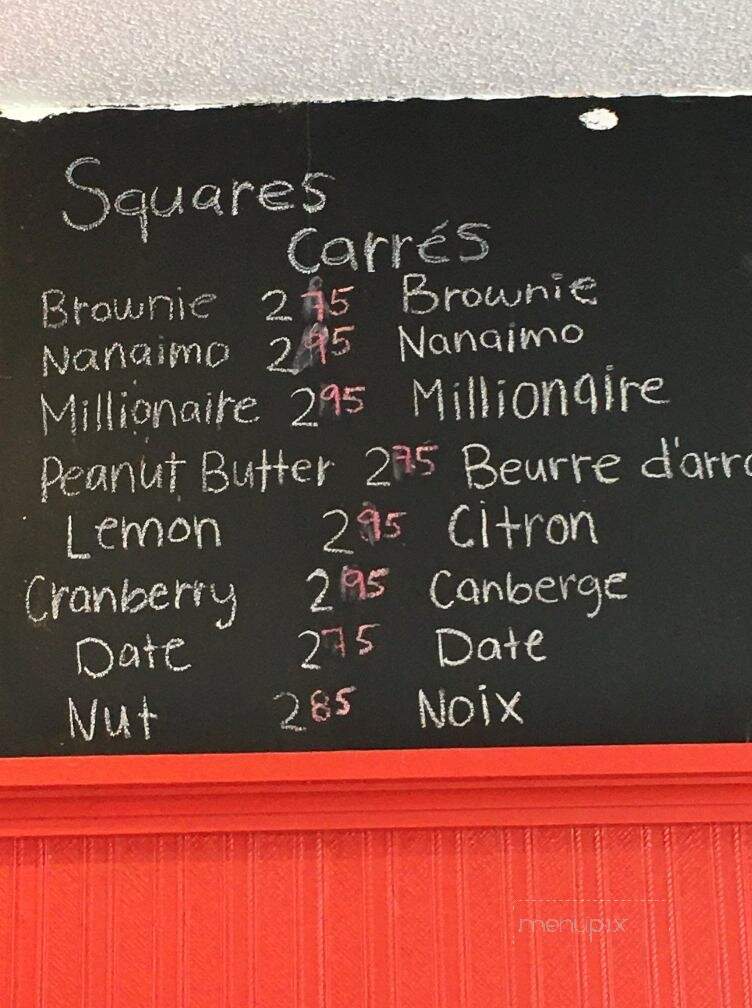 Squares
Carrés
Brownie 2 75 Brownie
Nanaimo 2 95 Nanaimo
Millionaire 2 95 Millionaire
Peanut Butter 2 75 Beurre
Lemon 2 95 Citron
Cranberry 2 95 Canberge
Date 2 75 Date
Nut 2 85 Noix
menupix